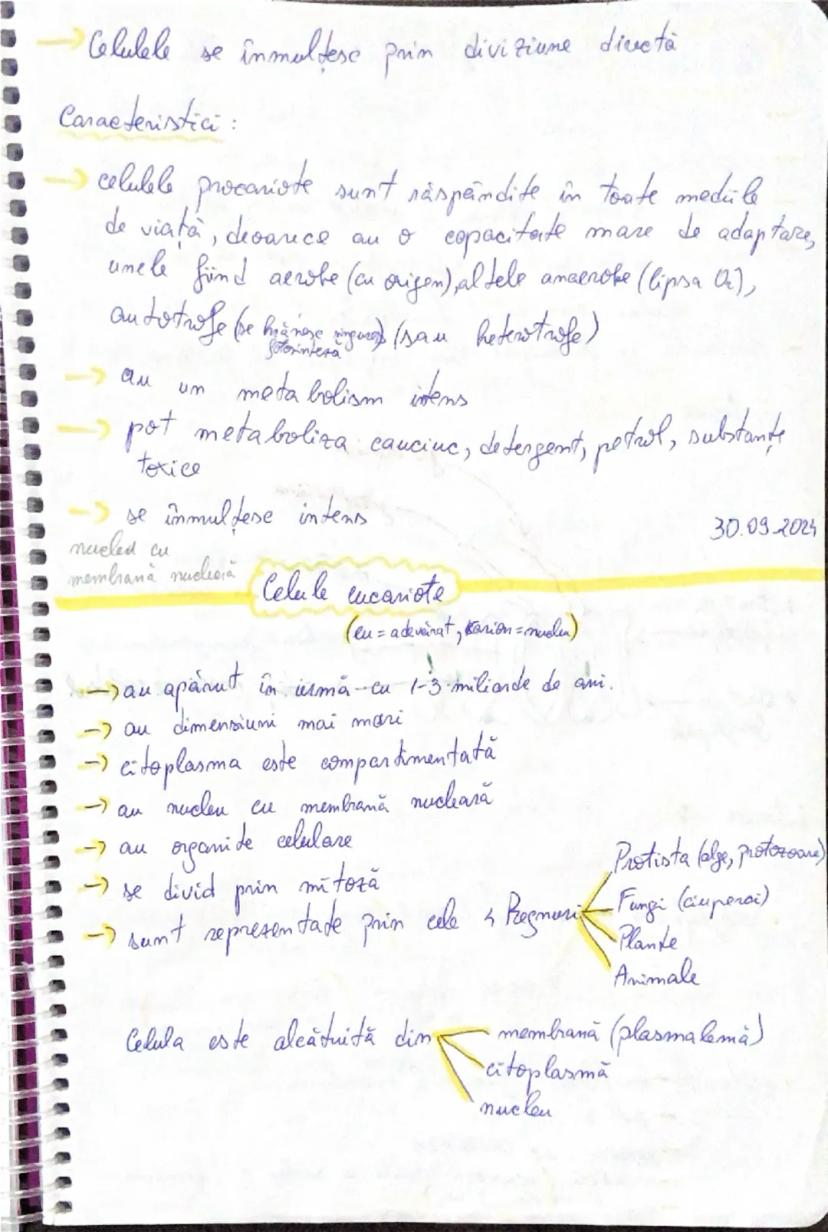 → Celulele se înmulțesc prin diviziune directă
Caracteristici:
→ celulele procariote sunt răspândite în toate mediile
de viață, deoarece au o capacitate mare de adaptare,
unele fiind aerobe (cu oxigen), altele anaerobe (lipsa O₂),
autotrofe (se hrănesc singure) (sau heterotrofe)
fotosinteză
→ au un metabolism intens
→ pot metaboliza cauciuc, detergent, petrol, substanțe
toxice
→ se înmulțesc intens
30.09.2024
nucleu cu
membrană nucleară
Celule eucariote
(eu = adevărat, karion = nucleu)
→ au apărut în urmă cu 1-3 miliarde de ani.
→ au dimensiuni mai mari
→ citoplasma este compartimentată
→ au nucleu cu membrană nucleară
→ au organite celulare
→ se divid prin mitoză
→ sunt reprezentate prin cele 4 Regnuri
Protista (alge, protozoare)
Fungi (ciuperci)
Plante
Animale
Celula este alcătuită din
membrană (plasmalemă)
citoplasmă
nucleu